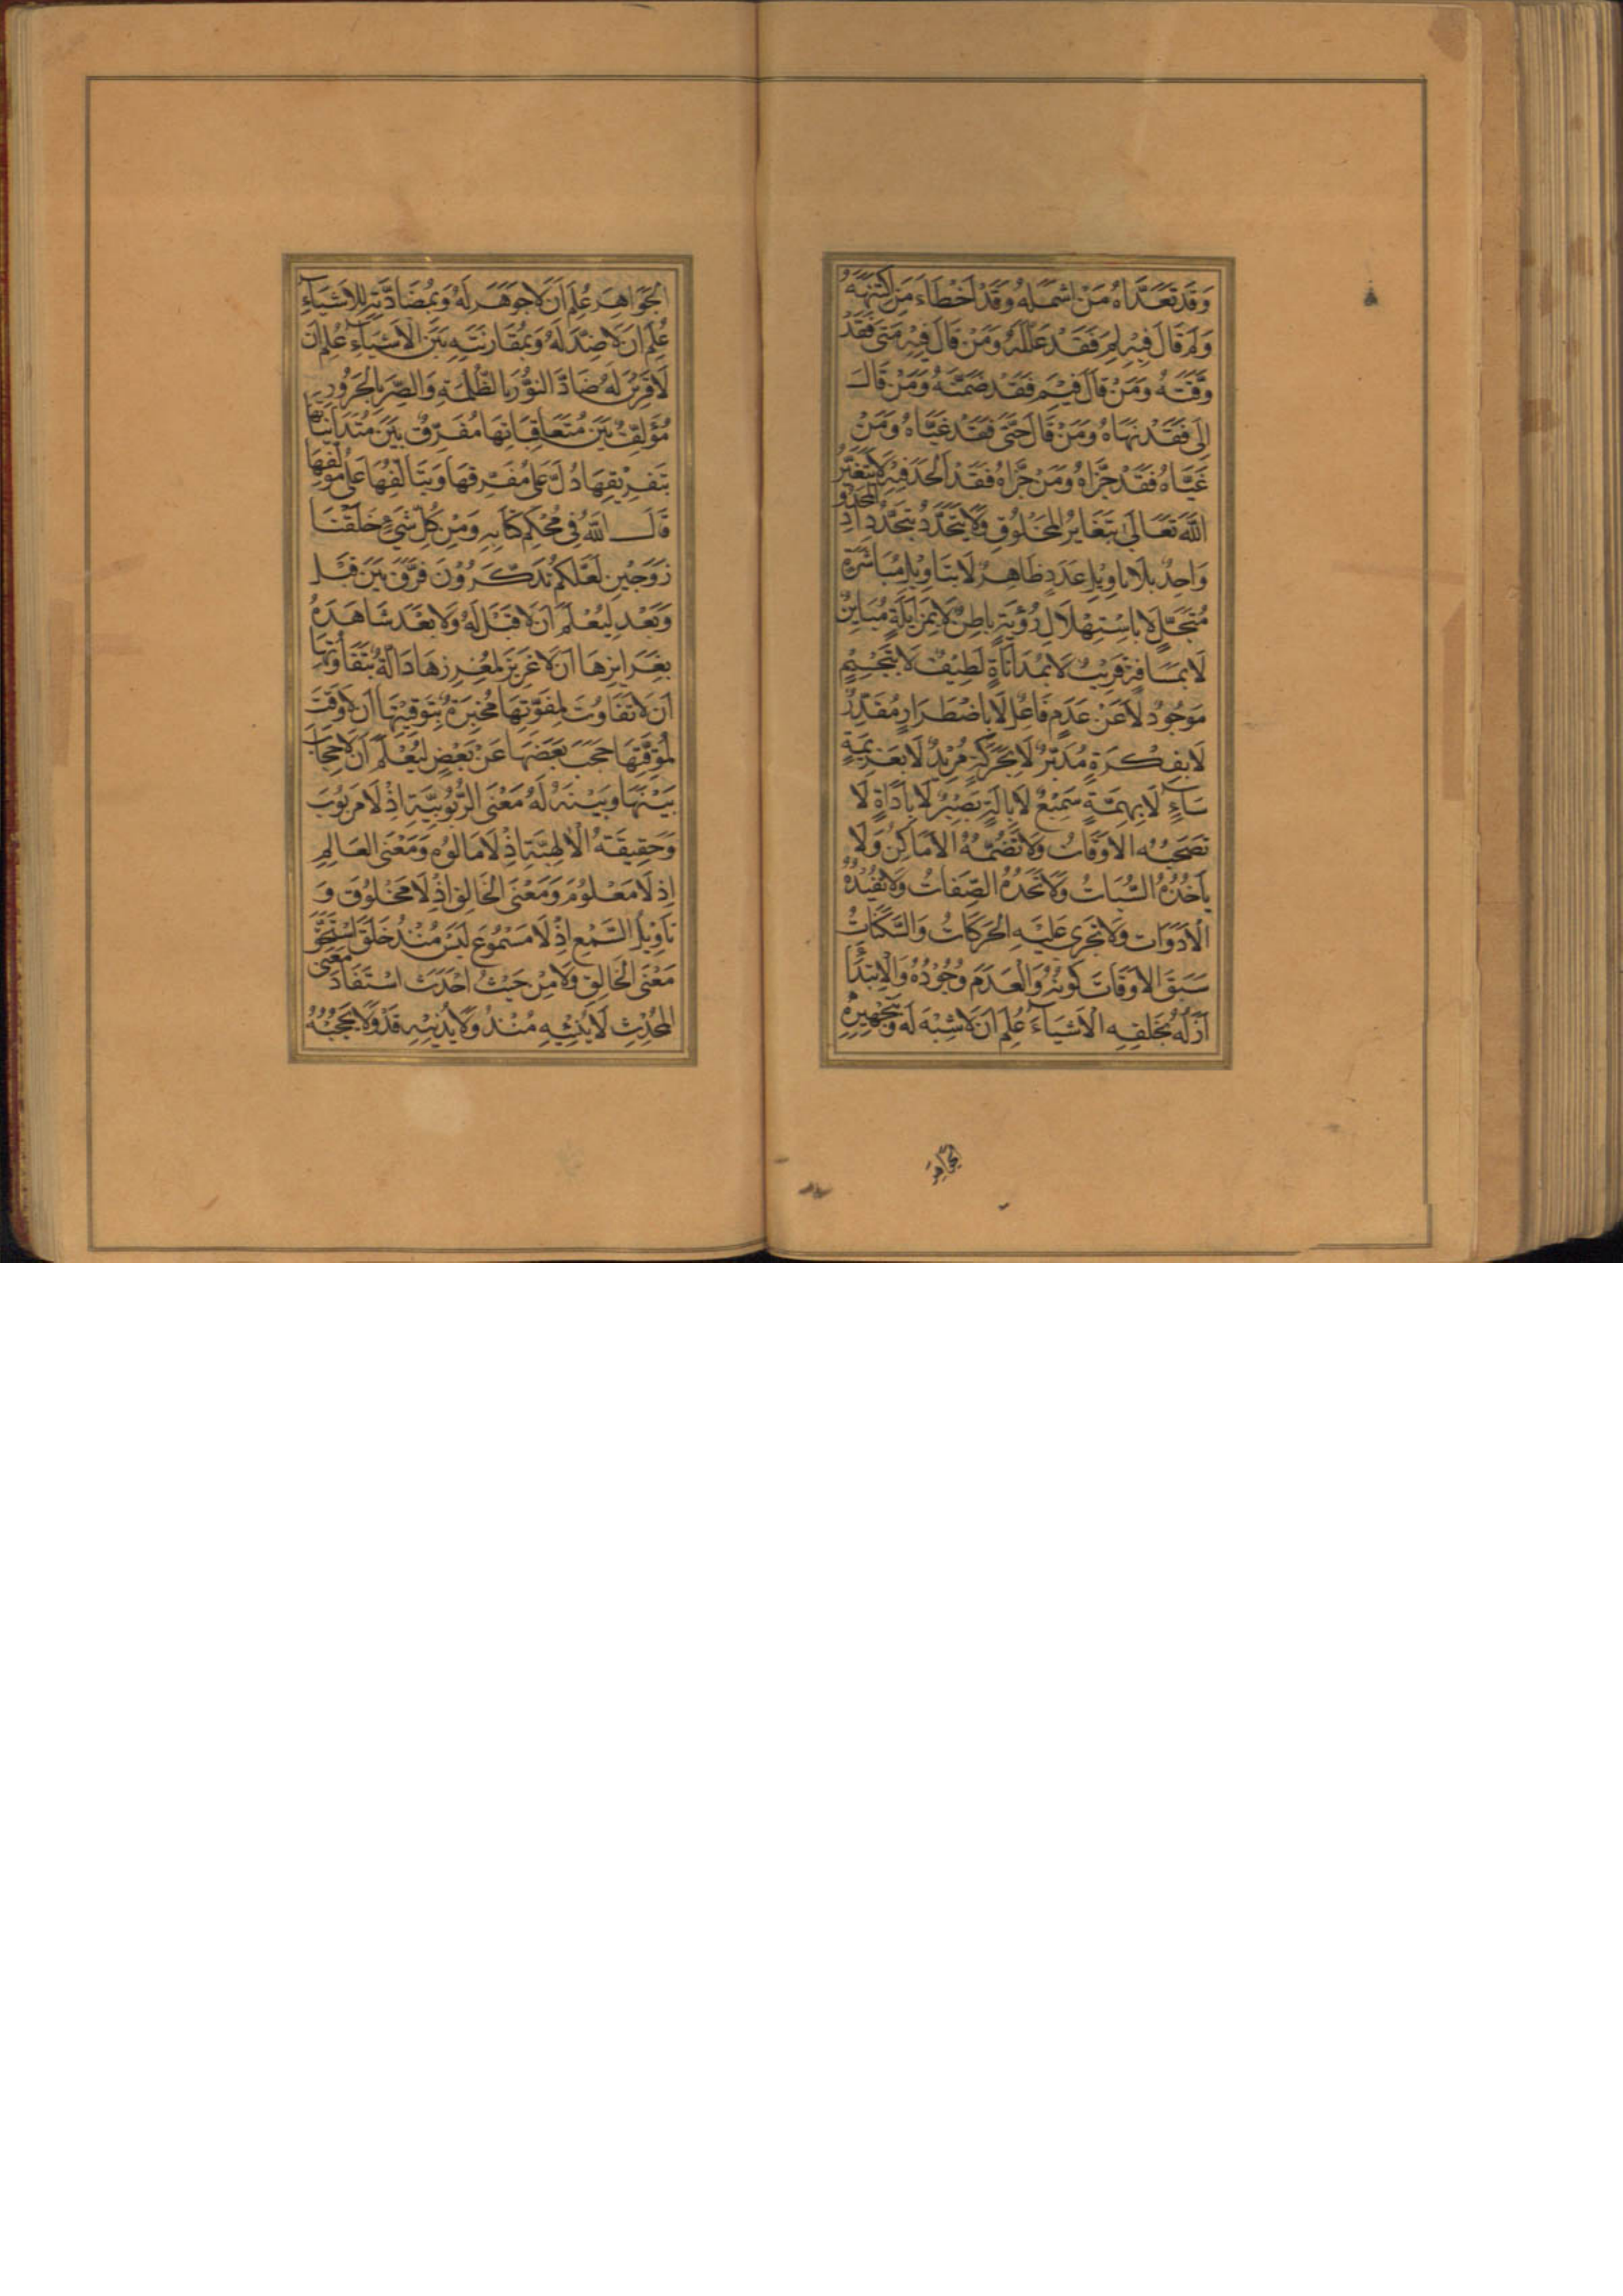 وَقَدْ تَعَدَّاهُ مَنْ اشْتَمَلَهُ وَقَدْ اَخْطَاءَ مَنِ اكْتَنَهَهُ
وَلَمْ قَالَ فِيْهِ لِمَ فَقَدْ عَلَّلَهُ وَمَنْ قَالَ فِيْهِ مَتىٰ فَقَدْ
وَقَّتَهُ وَمَنْ قَالَ فِيْمَ فَقَدْ ضَمَّنَهُ وَمَنْ قَالَ
اِلىٰ فَقَدْ نَهَاهُ وَمَنْ قَالَ حَتّىٰ فَقَدْ غَيَّاهُ وَمَنْ
غَيَّاهُ فَقَدْ جَزَّاهُ وَمَنْ جَزَّاهُ فَقَدْ اَلْحَدَ فِيْهِ لَا يَتَغَيَّرُ
اللّٰهُ تَعَالىٰ بِتَغَايُرِ الْمَخْلُوْقِ وَلَا يَتَحَدَّدُ بِتَحَدُّدِ الْمَحْدُوْدِ
وَاحِدٌ بِلَا تَاوِيْلِ عَدَدٍ ظَاهِرٌ لَا بِتَاوِيْلِ مُبَاشَرَةٍ
مُتَجَلٍّ لَا بِاسْتِهْلَالِ رُؤْيَةٍ بَاطِنٌ لَا بِمُزَايَلَةٍ مُبَايِنٌ
لَا بِمَسَافَةٍ قَرِيْبٌ لَا بِمُدَانَاةٍ لَطِيْفٌ لَا بِتَجْسِيْمٍ
مَوْجُوْدٌ لَا عَنْ عَدَمٍ فَاعِلٌ لَا بِاضْطِرَارٍ مُقَدِّرٌ
لَا بِفِكْرَةٍ مُدَبِّرٌ لَا بِحَرَكَةٍ مُرِيْدٌ لَا بِعَزِيْمَةٍ
شَاءٍ لَا بِهِمَّةٍ سَمِيْعٌ لَا بِاٰلَةٍ بَصِيْرٌ لَا بِاَدَاةٍ لَا
تَصْحَبُهُ الْاَوْقَاتُ وَلَا تَضُمُّهُ الْاَمَاكِنُ وَلَا
يَاخُذُهُ السُّبَاتُ وَلَا تَحُدُّهُ الصِّفَاتُ وَلَا تُقَيِّدُهُ
الْاَدَوَاتُ وَلَا تَجْرِي عَلَيْهِ الْحَرَكَاتُ وَالسَّكَنَاتُ
سَبَقَ الْاَوْقَاتَ كَوْنُهُ وَالْعَدَمَ وُجُوْدُهُ وَالْاِبْتِدَاءَ
اَزَلُهُ بِخَلْقِهِ الْاَشْيَاءَ عُلِمَ اَنْ لَا شِبْهَ لَهُ وَبِتَجْهِيْرِهِ
الْجَوَاهِرَ
الْجَوَاهِرَ عُلِمَ اَنْ لَا جَوْهَرَ لَهُ وَبِمُضَادَّتِهِ لِلْاَشْيَاءِ
عُلِمَ اَنْ لَا ضِدَّ لَهُ وَبِمُقَارَنَتِهِ بَيْنَ الْاَشْيَاءِ عُلِمَ اَنْ
لَا قَرِيْنَ لَهُ ضَادَّ النُّوْرَ بِالظُّلْمَةِ وَالصِّرَّ بِالْحَرُوْرِ
مُؤَلِّفٌ بَيْنَ مُتَعَاقِبَاتِهَا مُفَرِّقٌ بَيْنَ مُتَدَانِيَاتِهَا
بِتَفْرِيْقِهَا دَلَّ عَلىٰ مُفَرِّقِهَا وَبِتَالُفِهَا عَلىٰ مُؤَلِّفِهَا
قَالَ اللّٰهُ فِي مُحْكَمِ كِتَابِهِ وَمِنْ كُلِّ شَيْءٍ خَلَقْنَا
زَوْجَيْنِ لَعَلَّكُمْ تَذَكَّرُوْنَ فَرَّقَ بَيْنَ قَبْلٍ
وَبَعْدٍ لِيُعْلَمَ اَنْ لَا قَبْلَ لَهُ وَلَا بَعْدَ شَاهِدَةً
بِغَرَايِزِهَا اَنْ لَا غَرِيْزَ لِمُغْرِزِهَا دَالَّةً بِتَفَاوُتِهَا
اَنْ لَا تَفَاوُتَ لِمُفَوِّتِهَا مُخْبِرَةً بِتَوْقِيْتِهَا اَنْ لَا وَقْتَ
لِمُوَقِّتِهَا حَجَبَ بَعْضَهَا عَنْ بَعْضٍ لِيُعْلَمَ اَنْ لَا حِجَابَ
بَيْنَهَا وَبَيْنَهُ لَهُ مَعْنَى الرُّبُوْبِيَّةِ اِذْ لَا مَرْبُوْبَ
وَحَقِيْقَةُ الْاِلٰهِيَّةِ اِذْ لَا مَالُوْهَ وَمَعْنَى الْعَالِمِ
اِذْ لَا مَعْلُوْمَ وَمَعْنَى الْخَالِقِ اِذْ لَا مَخْلُوْقَ وَ
تَاوِيْلُ السَّمْعِ اِذْ لَا مَسْمُوْعَ لَيْسَ مُنْذُ خَلَقَ اسْتَحَقَّ
مَعْنَى الْخَالِقِ وَلَا مِنْ حَيْثُ اَحْدَثَ اسْتَفَادَ مَعْنَى
الْمُحْدِثِ لَا مُنْذُ وَلَا يُدْنِيْهِ قَدْ وَلَا يَحْجُبُهُ